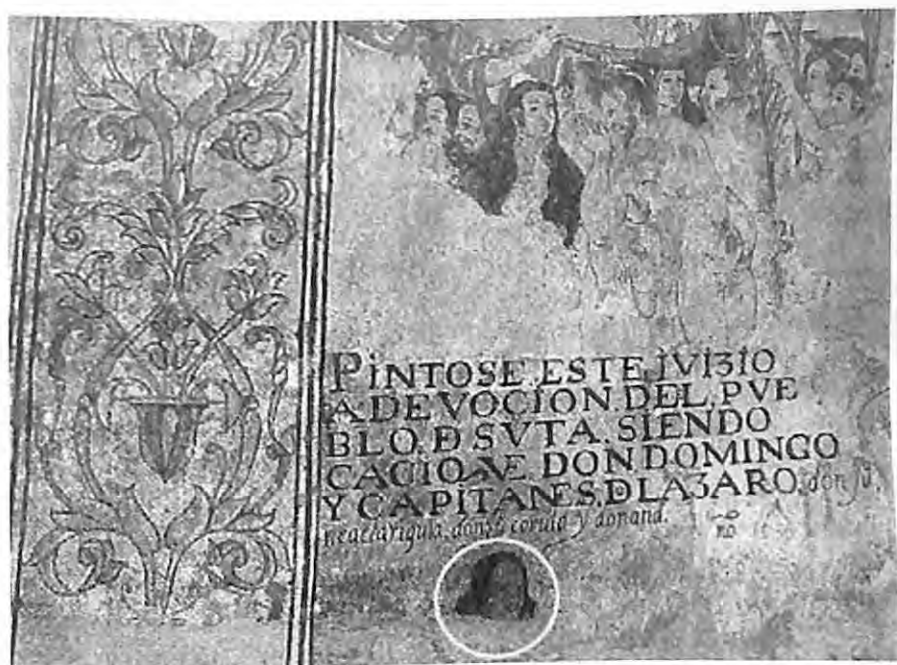 PINTOSE.ESTE.JVI3IO
A DEVOCION.DEL.PVE
BLO.Đ SVTA.SIENDO
CACIQVE DON DOMINGO
Y CAPITANES.D LA3ARO.don ju.
don ju coruia y don and.
no